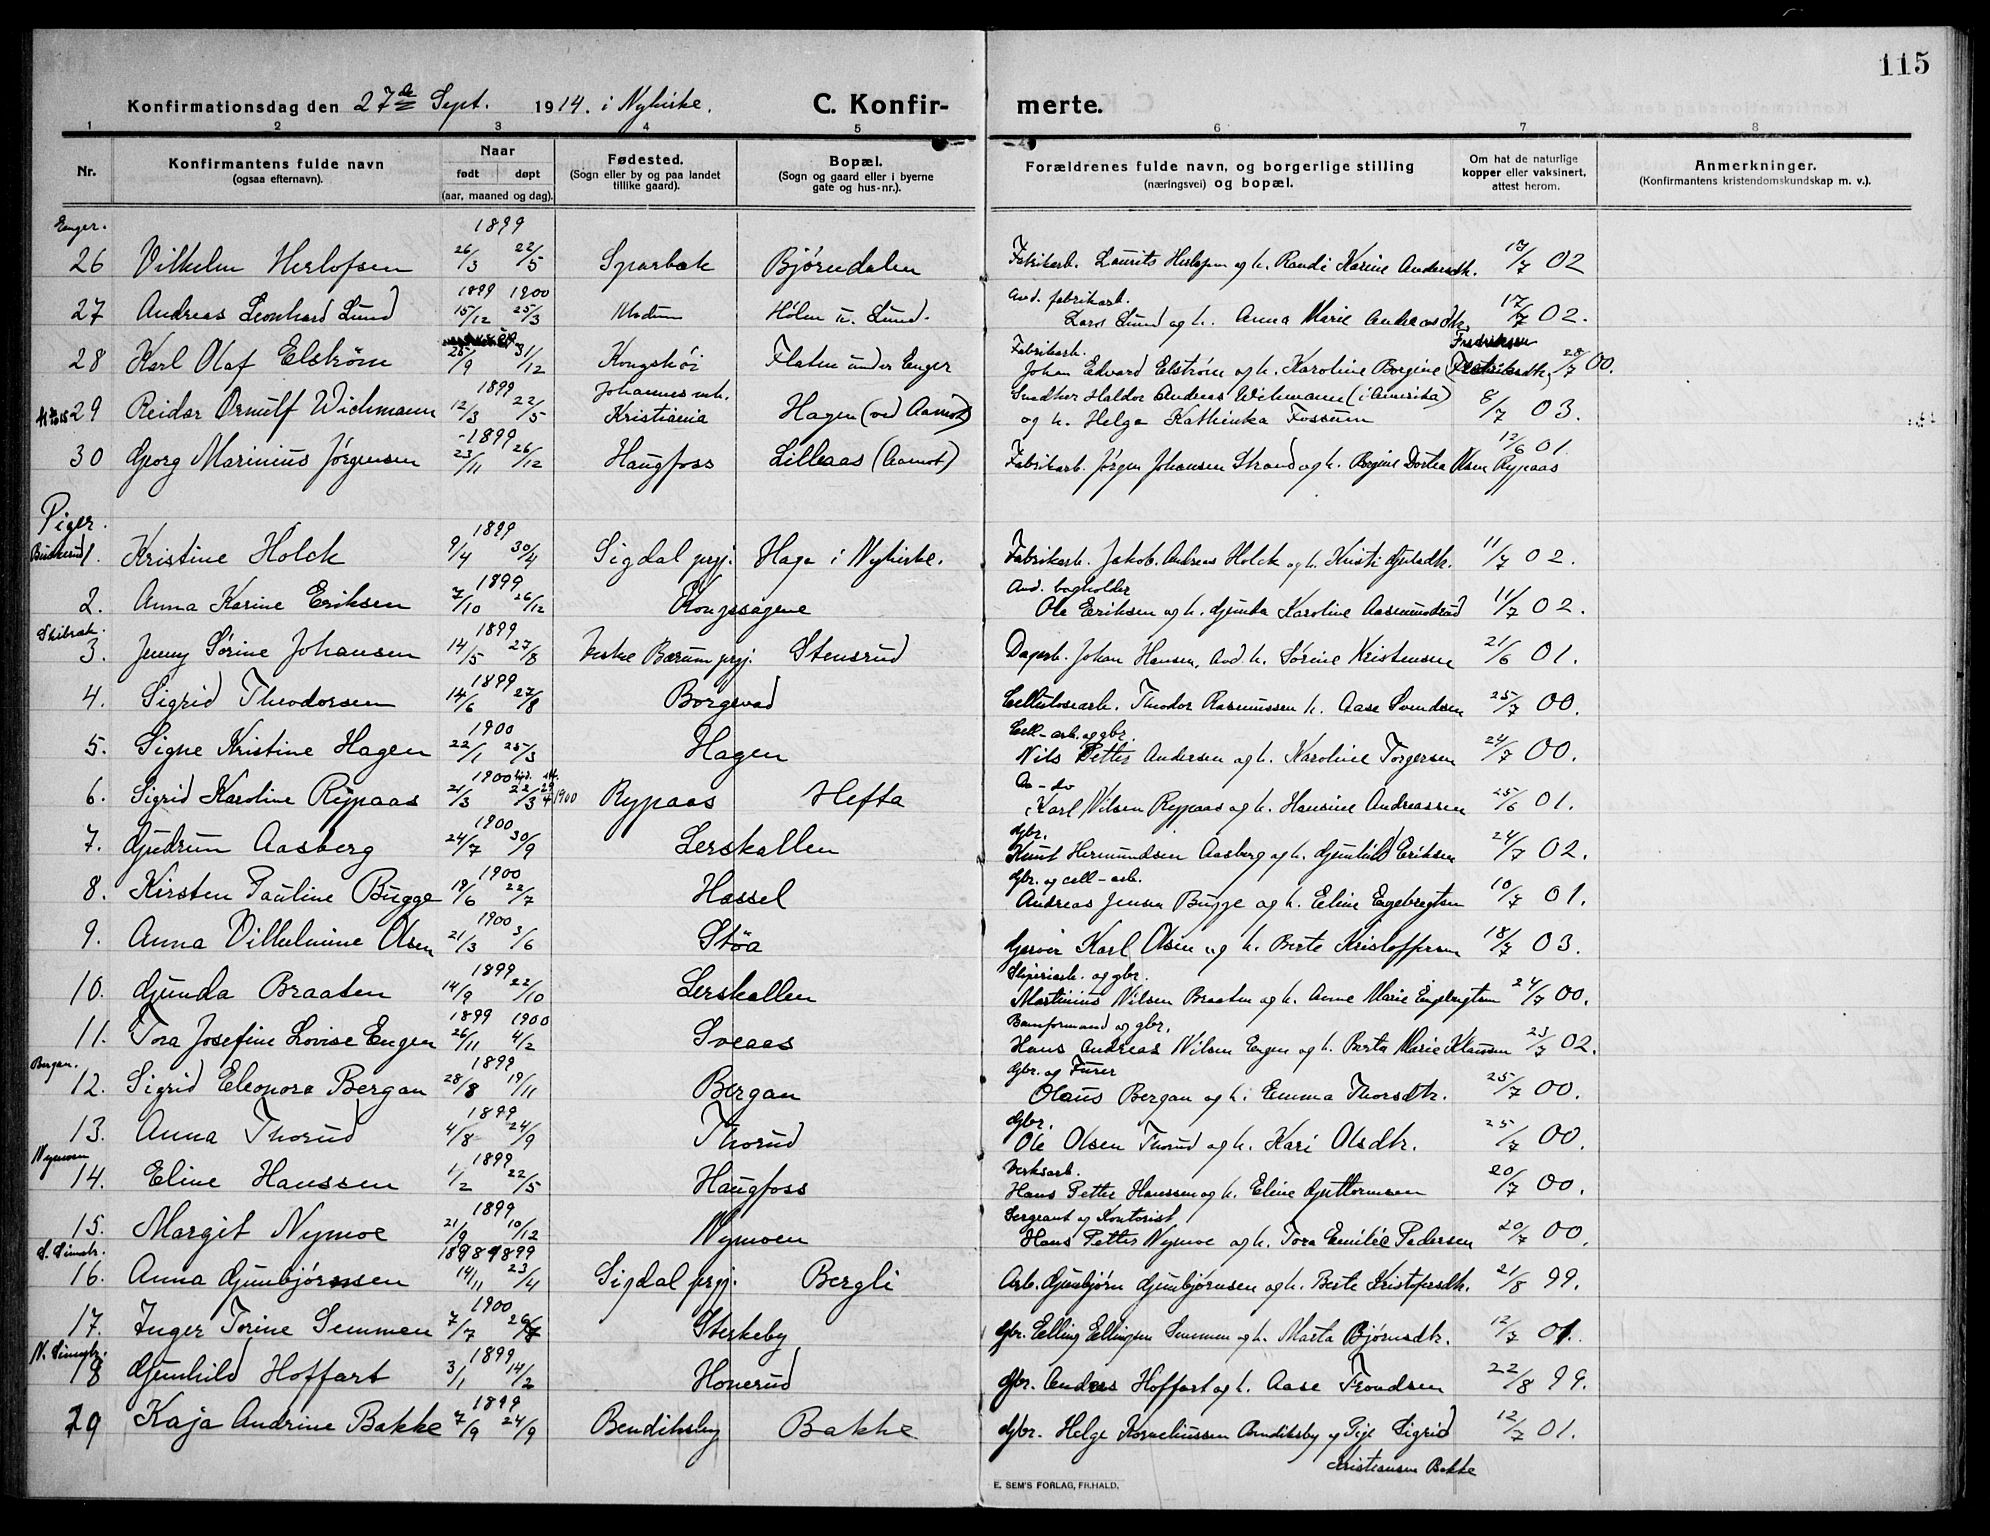 115
Konfirmationsdag den 27de Sept. 1914. i Nykirke. C. Konfirmerte.
1 2 3 4 5 6 7 8
Nr. Konfirmantens fulde navn (ogsaa efternavn). Naar født døpt (aar, maaned og dag). Fødested. (Sogn eller by og paa landet tillike gaard). Bopæl. (Sogn og gaard eller i byerne gate og hus-nr.). Forældrenes fulde navn, og borgerlige stilling (næringsvei) og bopæl. Om hat de naturlige kopper eller vaksinert, attest herom. Anmerkninger. (Konfirmantens kristendomskundskap m. v.).
Enger. 1899
26 Vilhelm Herlofsen 26/3 22/5 Sparbak Bjørndalen Fabrikarb. Laurits Herlofsen og h. Randi Karine Andersdtr. 17/7 02
1899 1900 Avd. fabrikarb.
27 Andreas Leonhard Lund 15/12 25/3 Modum Hølen u. Lund. Lars Lund og h. Anna Marie Andreasdtr. 17/7 02.
Fabrikarb. Fredriksen
28 Karl Olaf Elstrøm 25/9 31/12 Kongshøi Flaten under Enger Johan Edvard Elstrøm og h. Karoline Borgine 28/7 00.
1899 Johannes mh. Snedker Haldor Andreas Wichmann (i Amerika)
29 Reidar Ornulf Wichmann 12/3 22/5 Kristiania Hagen (ved Aamot) og h. Helga Kathinka Fossum 8/7 03.
1899
30 Georg Marinius Jørgensen 23/11 26/12 Haugfoss Lilleaas (Aamot) Fabrikarb. Jørgen Johansen Strand og h. Borgine Dortea Olsen Rypaas 12/6 01
Piger.
Buskerud 1899
1. Kristine Holck 9/4 30/4 Sigdal prgj. Haga i Nykirke. Fabrikarb. Jakob Andreas Holck og h. Kristi 11/7 02.
1899 Avd. bogholder
2. Anna Karine Eriksen 7/10 26/12 Kongssagene Ole Eriksen og h. Gunda Karoline Aasmundsrud 11/7 02.
Skibrak. 1899
3. Jenny Sørine Johansen 14/5 27/8 Vestre Bærum prgj. Stensrud Dagarb. Johan Hansen, avd h. Sørine Kristensen 21/6 01.
1899
4. Sigrid Theodorsen 14/6 27/8 Borgevad Cellulosearb. Theodor Rasmussen h. Aase Svendsen 25/7 00.
1900 Cell-arb. og gbr.
5. Signe Kristine Hagen 22/1 25/3 Hagen Nils Petter Andersen og h. Karoline Torgersen 24/7 00.
1900 do - do
6. Sigrid Karoline Rypaas 21/3 22/3 29/4 1900 Rypaas Hefta Karl Nilsen Rypaas og h. Hansine Andreassen 25/6 01.
1900 Gbr.
7. Gudrun Aasberg 24/7 30/9 Lerskallen Knut Hermundsen Aasberg og h. Gunhild Eriksen 24/7 02.
1900 Gbr. og cell-arb.
8. Kirsten Pauline Bugge 19/6 22/7 Hassel Andreas Jensen Bugge og h. Eline Engebregtsen 10/7 01.
1900
9. Anna Vilhelmine Olsen 21/3 3/6 Støa Garver Karl Olsen og h. Berte Kristoffersen 18/7 03.
1899 Sliperiarb. og gbr.
10. Gunda Braaten 14/9 22/10 Lerskallen Martinius Nilsen Braaten og h. Anne Marie Engebregtsen 24/7 00.
1899 1900 Bomformand og gbr.
11. Tora Josefine Lovise Engen 26/11 4/2 Sveaas Hans Andreas Nilsen Engen og h. Berta Marie Klausen 23/7 02.
Bergan. 1899 Gbr. og Furer
12. Sigrid Eleonora Bergan 28/8 19/11 Bergan Olaus Bergan og h. Emma Thorsdtr. 25/7 00.
1899 Gbr.
13. Anna Thorud 4/8 24/9 Thorud Ole Olsen Thorud og h. Kari Olsdtr. 25/7 00.
Nymoen 1899 Verksarb.
14. Eline Hanssen 1/2 22/5 Haugfoss Hans Petter Hanssen og h. Eline Guttormsen 20/7 00.
1899 Sergeant og Kontorist
15. Margit Nymoe 21/9 10/12 Nymoen Hans Petter Nymoe og h. Tora Emilie Pedersen 20/7 00.
S. Simostr. 1898 1899
16. Anna Gunbjørnsen 14/11 23/4 Sigdal prgj. Bergli Arb. Gunbjørn Gunbjørnsen og h. Berte Kristofersdtr. 21/8 99.
1900
17. Inger Torine Semmen 7/7 26/8 Sterkeby Gbr. Elling Ellingsen Semmen og h. Marta Bjørnsdtr. 12/7 01.
N. Simostr. 1899
18 Gunhild Hoffart 3/1 14/2 Honerud Gbr. Andreas Hoffart og h. Aase Trondsen 22/8 99.
1899
19 Kaja Andrine Bakke 7/9 24/9 Bendiksby Bakke Gbr. Helge Korneliussen Bendiksby og Pige Sigrid 12/7 01.
Kristiansen Bakke
E. SEM'S FORLAG, FR.HALD.